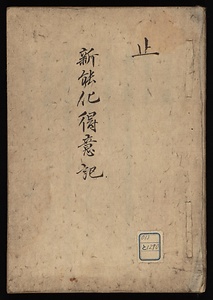 止
新能化得意記